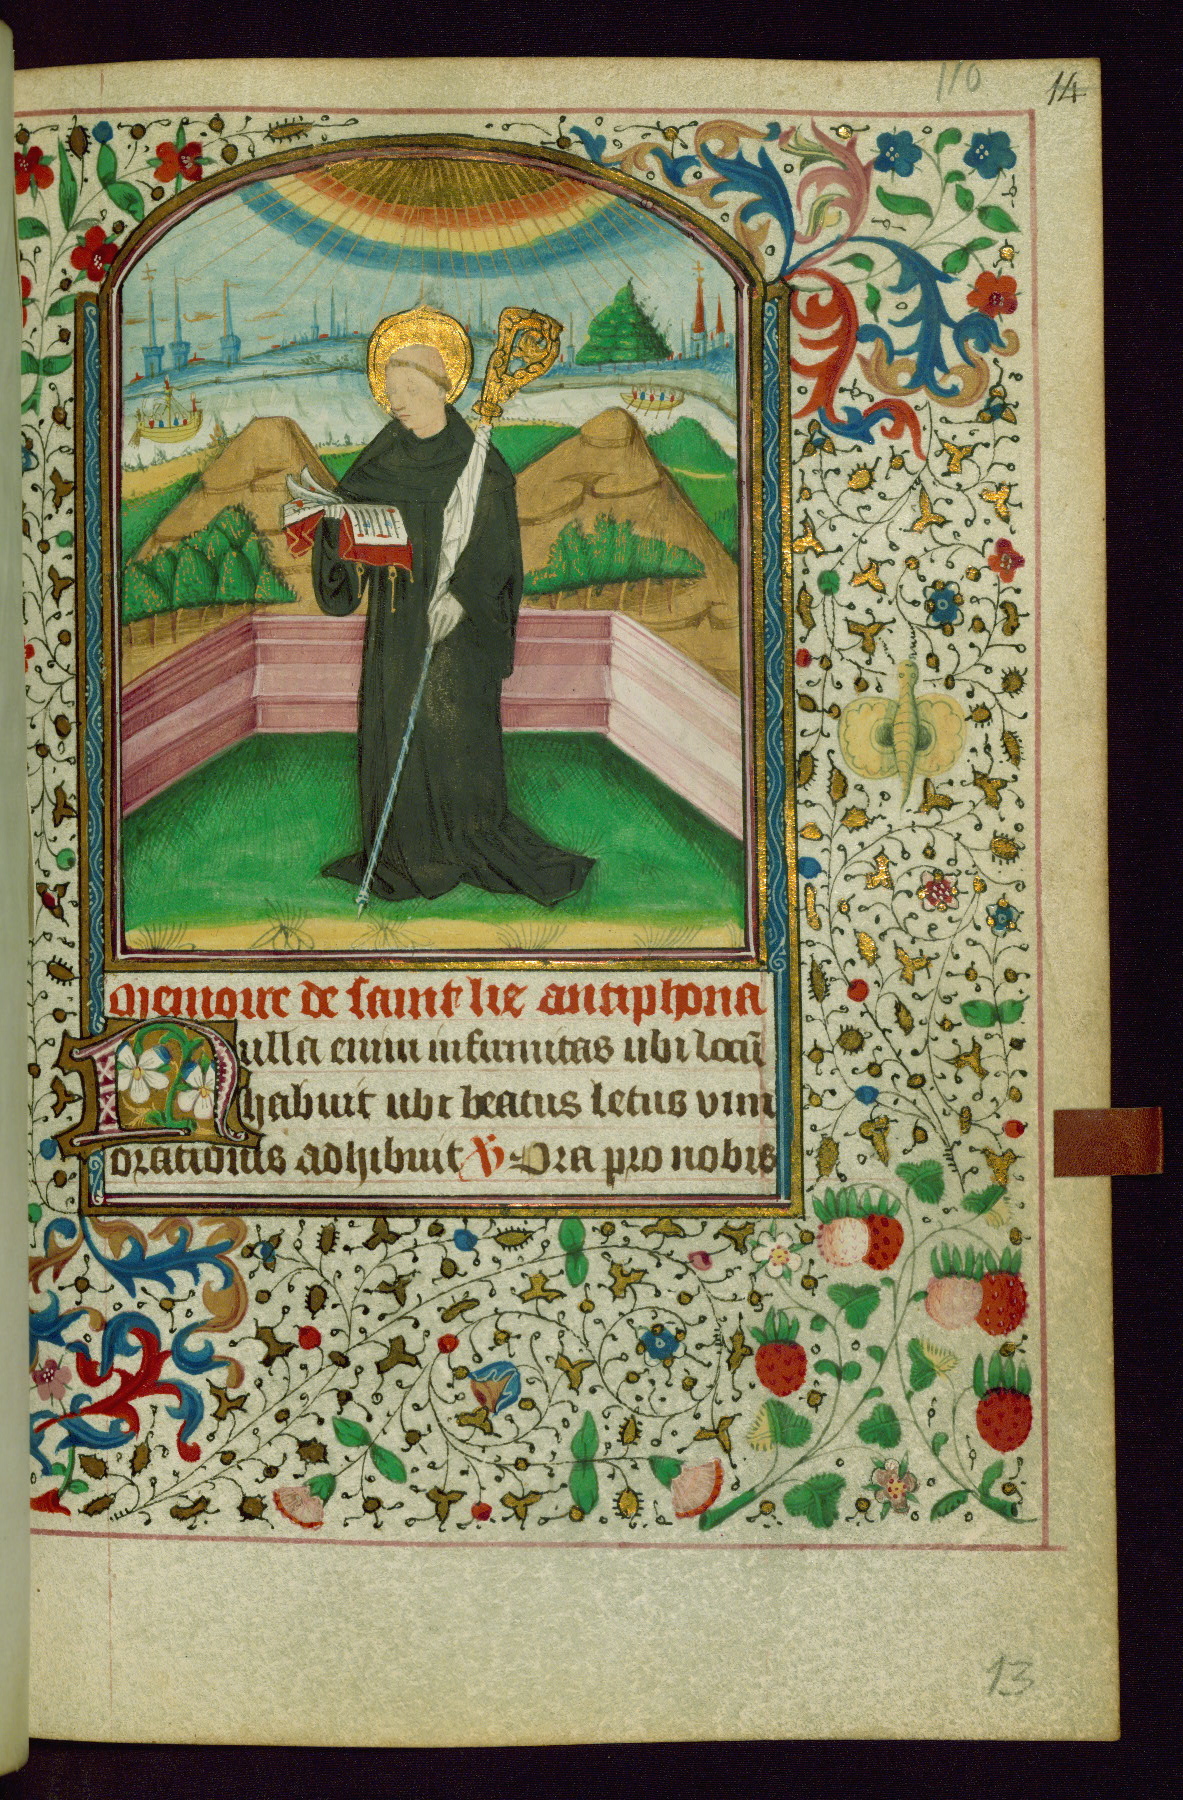 110
14
Memoire de saint lie antiphona
Nulla enim infirmitas ubi locũ
habuit ubi beatus letus vim
orationis adhibuit V Ora pro nobis
13